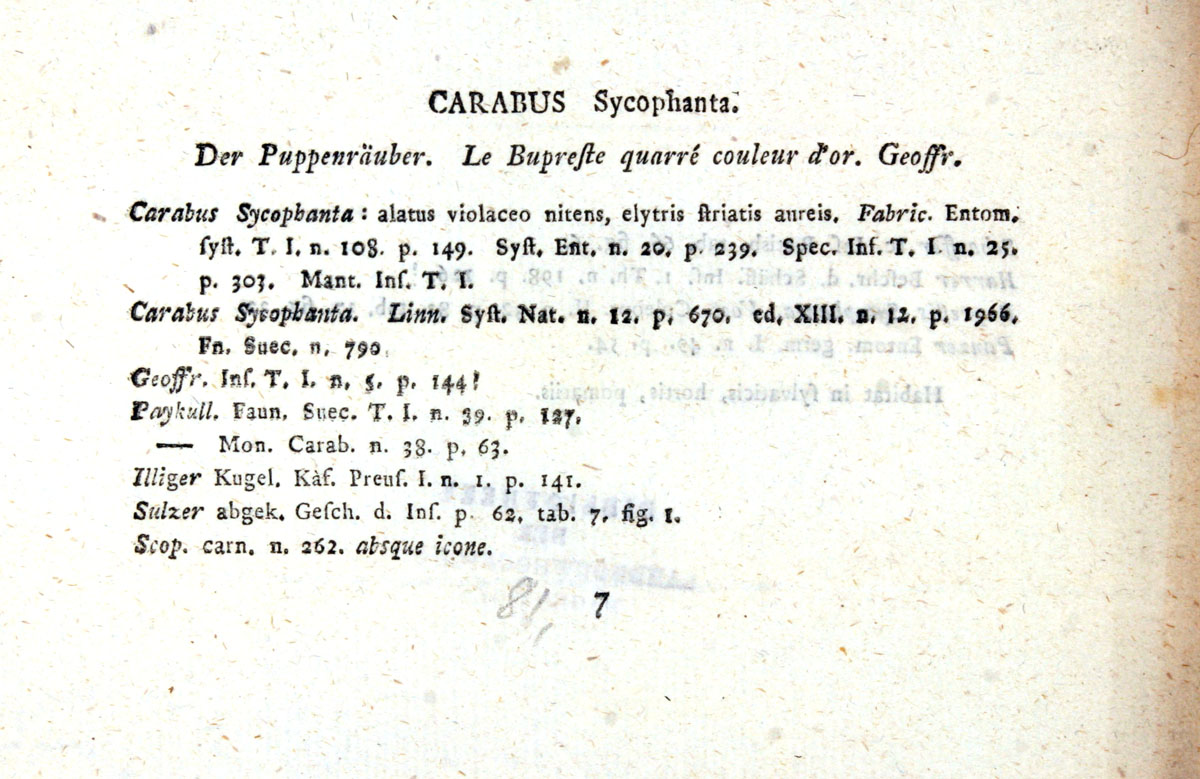 CARABUS Sycophanta.
Der Puppenräuber. Le Bupreſte quarré couleur d'or. Geoffr.
Carabus Sycophanta: alatus violaceo nitens, elytris ſtriatis aureis. Fabric. Entom.
ſyſt. T. I. n. 108. p. 149. Syſt. Ent. n. 20. p. 239. Spec. Inſ. T. I. n. 25.
p. 303. Mant. Inſ. T. I.
Carabus Sycophanta. Linn. Syſt. Nat. n. 12. p. 670. ed. XIII. n. 12. p. 1966.
Fn. Suec. n. 790.
Geoffr. Inſ. T. I. n. 5. p. 144!
Paykull. Faun. Suec. T. I. n. 39. p. 127.
— Mon. Carab. n. 38. p. 63.
Illiger Kugel. Käf. Preuſ. I. n. 1. p. 141.
Sulzer abgek. Geſch. d. Inſ. p. 62. tab. 7. fig. 1.
Scop. carn. n. 262. absque icone.
81, 7